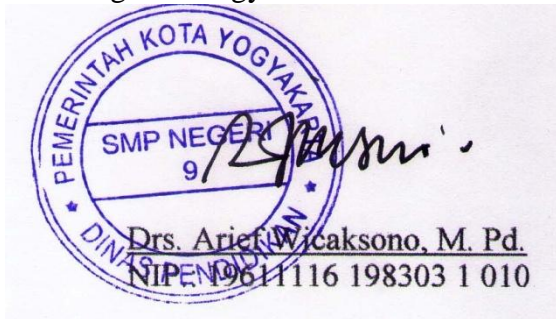 PEMERINTAH KOTA YOGYAKARTA
SMP NEGERI
9
DINAS PENDIDIKAN
Drs. Arief Wicaksono, M. Pd.
NIP. 19611116 198303 1 010